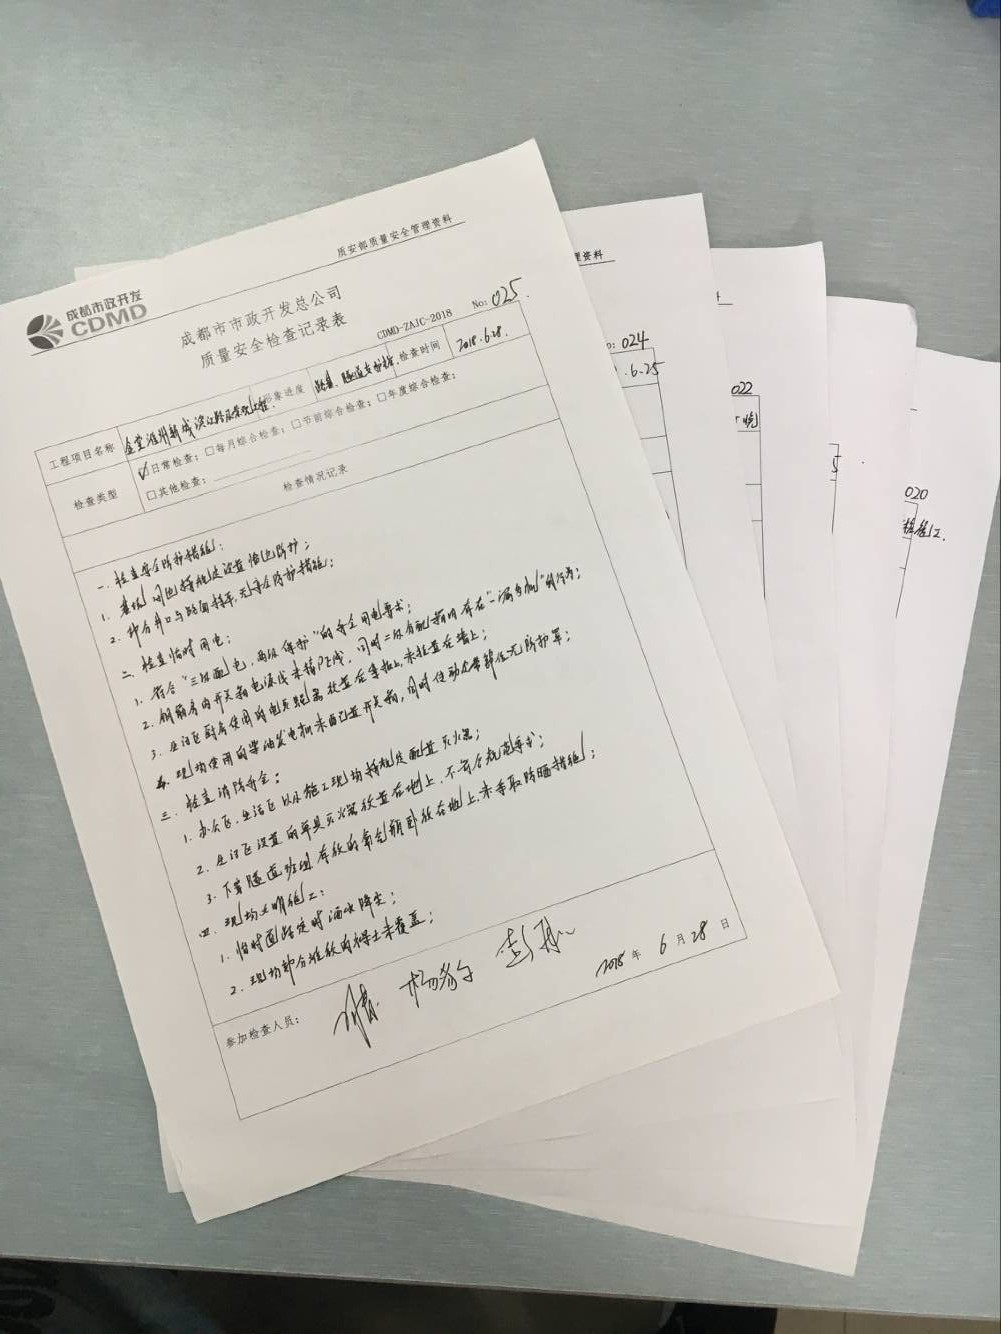 成都市政开发
CDMD
质安部质量安全管理资料
成都市市政开发总公司
质量安全检查记录表
CDMD-ZAJC-2018
No: 025
工程项目名称
金堂淮州新城滨江路及景观工程
形象进度
路基、隧道支护桩
检查时间
2018.6.28.
检查类型
☑日常检查；□每月综合检查；□节前综合检查；□年度综合检查；
□其他检查：
检查情况记录
一、检查安全防护措施：
1. 基坑周边按规定设置临边防护；
2. 部分井口与路面持平，无安全防护措施；
二、检查临时用电：
1. 符合“三级配电，两级保护”的安全用电要求；
2. 钢筋房内开关箱电源线未接PE线，同时二级分配电箱内存在“一闸多机”的行为；
3. 生活区厨房使用的电具 放置在 上，未挂置在墙上；
4. 现场使用的柴油发电机未自己设开关箱，同时传动皮带部位无防护罩；
三、检查消防安全：
1. 办公区、生活区以及施工现场按规定配置灭火器；
2. 生活区设置的单具灭火器放置在地上，不符合规范要求；
3. 下穿隧道班组存放的氧气瓶卧放在地上，未采取防晒措施；
四、现场文明施工：
1. 临时道路定时洒水降尘；
2. 现场部分堆放的裸土未覆盖；
参加检查人员：
2018 年 6 月 28 日
理资料
024
.6.25
022
020
施工.